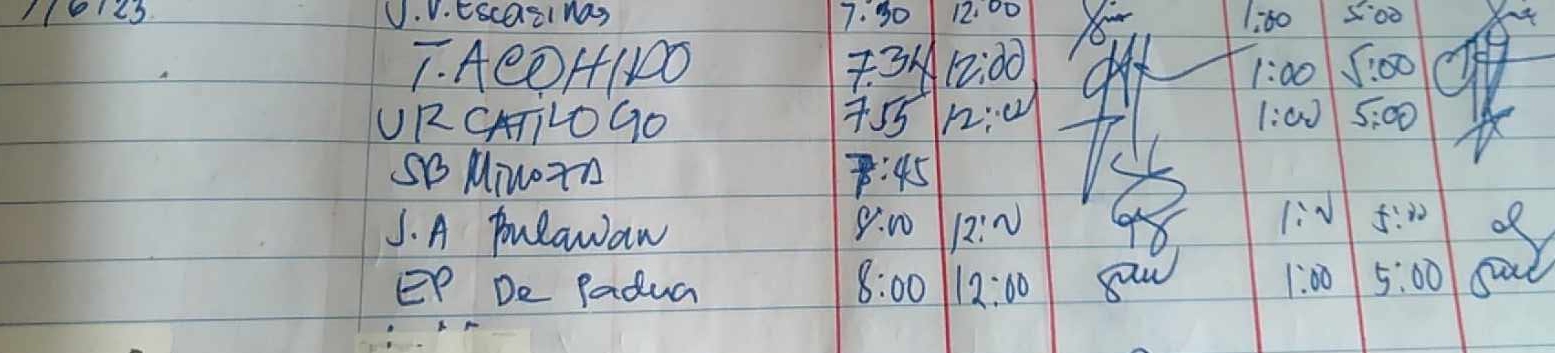 7/6/23 J.V. Escasinas 7:30 12:00 1:00 5:00
T. ACOHIDO 7:34 12:00 1:00 5:00
UR CATILOGO 7:55 12:00 1:00 5:00
SB Minoza 7:45
J.A Bulawan 8:00 12:00 1:00 5:00
EP De Padua 8:00 12:00 1:00 5:00